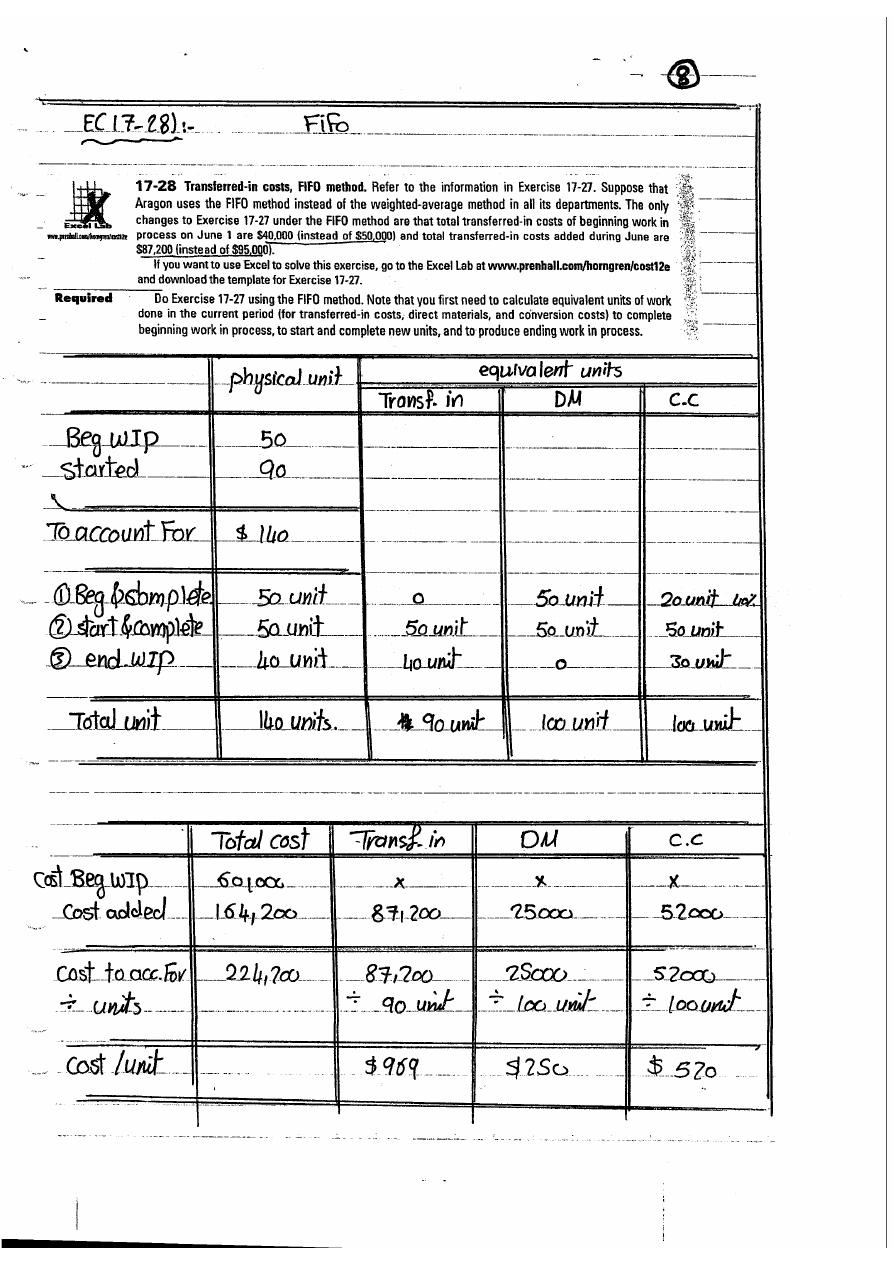 8
EC17-28):- FiFo
17-28 Transferred-in costs, FIFO method. Refer to the information in Exercise 17-27. Suppose that
Aragon uses the FIFO method instead of the weighted-average method in all its departments. The only
changes to Exercise 17-27 under the FIFO method are that total transferred-in costs of beginning work in
process on June 1 are $40,000 (instead of $50,000) and total transferred-in costs added during June are
$87,200 (instead of $95,000).
Excel Lab
www.prenhall.com/horngren/cost12e
If you want to use Excel to solve this exercise, go to the Excel Lab at www.prenhall.com/horngren/cost12e
and download the template for Exercise 17-27.
Required Do Exercise 17-27 using the FIFO method. Note that you first need to calculate equivalent units of work
done in the current period (for transferred-in costs, direct materials, and conversion costs) to complete
beginning work in process, to start and complete new units, and to produce ending work in process.
physical unit equivalent units
Transf. in DM C.C
Beg WIP 50
Started 90
To account For $ 140
① Beg & complete 50 unit 0 50 unit 20 unit 40%
② start & complete 50 unit 50 unit 50 unit 50 unit
③ end WIP 40 unit 40 unit 0 30 unit
Total unit 140 units. 90 unit 100 unit 100 unit
Total cost Transf. in DM C.C
Cost Beg WIP 60,000 x x x
Cost added 164,200 87,200 25000 52000
Cost to acc. For 224,200 87,200 25000 52000
÷ units ÷ 90 unit ÷ 100 unit ÷ 100 unit
Cost / unit $ 969 $ 250 $ 520